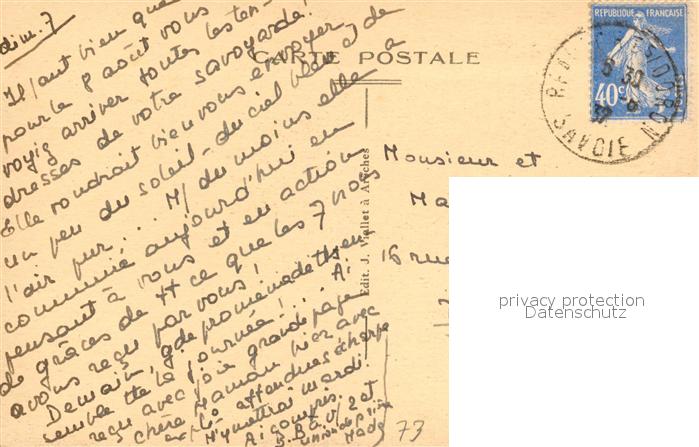 dim. 7
Il faut bien que
pour le 8 août vous
voyiez arriver toutes les ten-
dresses de votre savoyarde!
Elle voudrait bien vous envoyer
un peu du soleil - du ciel bleu et de
l'air pur... M/ du moins elle a
communié aujourd'hui en
pensant à vous et en action
de grâces de tt ce que les 7 nos
avons reçu par vous!
Demain, gde promenade tts en-
semble tte la journée!...
reçu avec joie grande page
chère Maman hier avec
explé attendues écharpe
M'y mettrai mardi.
A
2 et
union de
Mado
CARTE POSTALE
Edit. J. Viallet à Arêches
REPUBLIQUE FRANÇAISE
40c
SAVOIE
Monsieur et
Ma
16 rue
privacy protection
Datenschutz
73